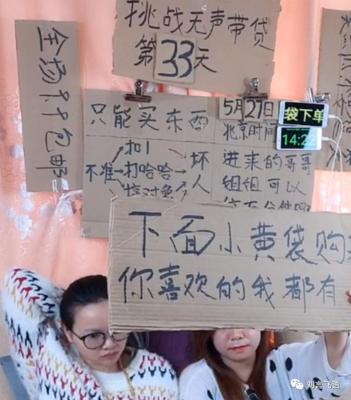 挑战无声带贷
第33天
全场9.9包邮
只能买东西
不准
扣1
打哈哈
坏人
5月27日
北京时间
袋下单
14:22
进来的哥哥
姐姐可以
下面小黄袋购
你喜欢的我都有
刘志飞语